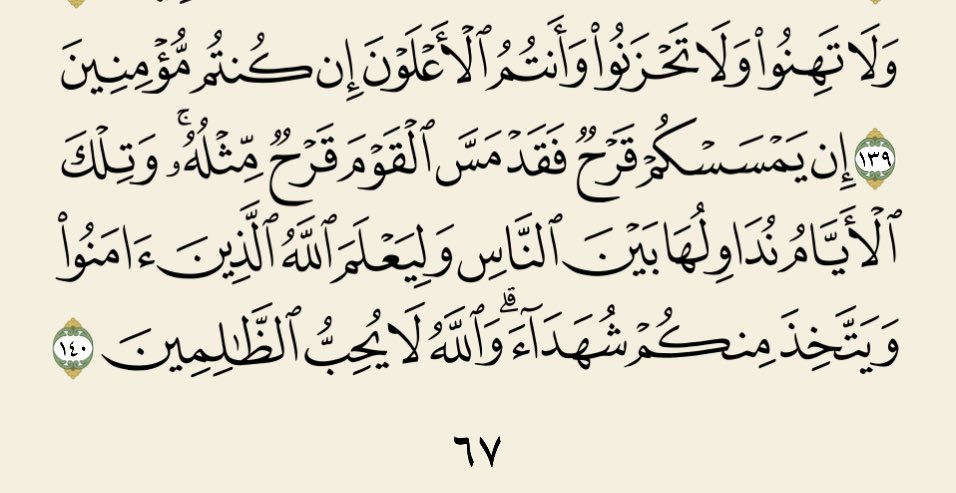 وَلَا تَهِنُوا۟ وَلَا تَحْزَنُوا۟ وَأَنتُمُ ٱلْأَعْلَوْنَ إِن كُنتُم مُّؤْمِنِينَ
١٣٩ إِن يَمْسَسْكُمْ قَرْحٌ فَقَدْ مَسَّ ٱلْقَوْمَ قَرْحٌ مِّثْلُهُۥ ۚ وَتِلْكَ
ٱلْأَيَّامُ نُدَاوِلُهَا بَيْنَ ٱلنَّاسِ وَلِيَعْلَمَ ٱللَّهُ ٱلَّذِينَ ءَامَنُوا۟
وَيَتَّخِذَ مِنكُمْ شُهَدَآءَ ۗ وَٱللَّهُ لَا يُحِبُّ ٱلظَّـٰلِمِينَ ١٤٠
٦٧